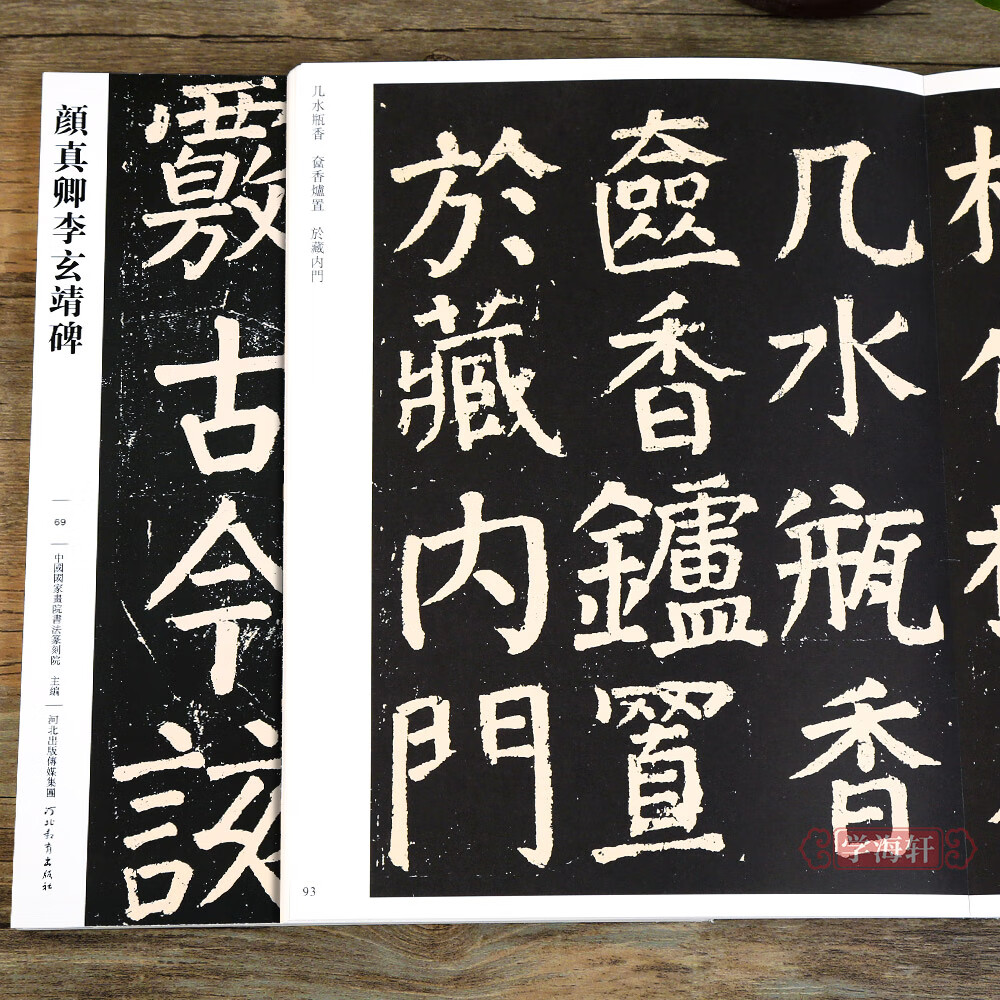 顔真卿李玄靖碑
69
中國國家畫院書法篆刻院 主編
河北出版傳媒集團
河北教育出版社
覈古今該
几水瓶香 奩香爐置 於藏内門
几水瓶香
奩香鑪置
於藏内門
93
学海轩